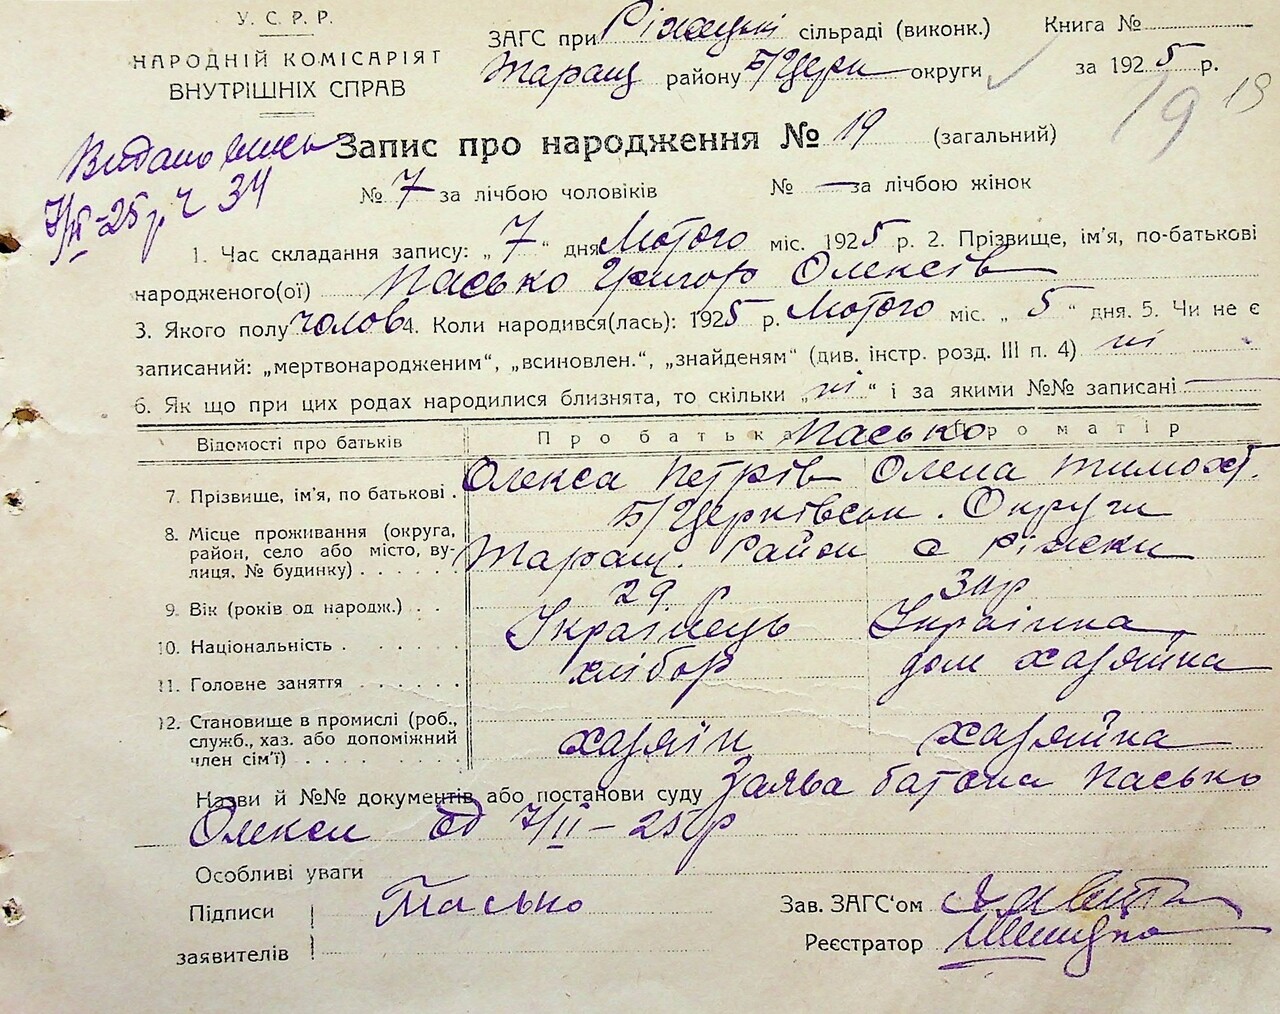 У. С. Р. Р.
НАРОДНІЙ КОМІСАРІЯТ
ВНУТРІШНІХ СПРАВ
ЗАГС при сільраді (виконк.)
Таращ району Б/Церк округи
Книга №
за 1925 р.
19 19
Видано
7/II-25 р ч 34
Запис про народження № 19 (загальний)
№ 7 за лічбою чоловіків № — за лічбою жінок
1. Час складання запису: „ 7 “ дня Лютого міс. 1925 р. 2. Прізвище, ім'я, по-батькові
народженого(ої) Пасько Григор Олексів
3. Якого полу чолов 4. Коли народився(лась): 1925 р. Лютого міс. „ 5 “ дня. 5. Чи не є
записаний: „мертвонародженим“, „всиновлен.“, „знайденям“ (див. інстр. розд. III п. 4) ні
6. Як що при цих родах народилися близнята, то скільки „ ні “ і за якими №№ записані —
Відомості про батьків Про батька Пасько Про матір
7. Прізвище, ім'я, по батькові . Олекса Петрів Олена Тимохв.
8. Місце проживання (округа, район, село або місто, вулиця, № будинку) . . . . . Б/Церківськ. Округи
Таращ. Район с Ріжки
9. Вік (років од народж.) . . 29 30 р
10. Національність . . . . . . Українець Українка
11. Головне заняття . . . . . хлібор дом хазяйка
12. Становище в промислі (роб., служб., хаз. або допоміжний член сім'ї) . . . . . . . хазяїн хазяйка
Назви й №№ документів або постанови суду Заява батька Пасько
Олекси од 7/II – 25 р
Особливі уваги
Підписи заявителів Пасько
Зав. ЗАГС'ом
Реєстратор